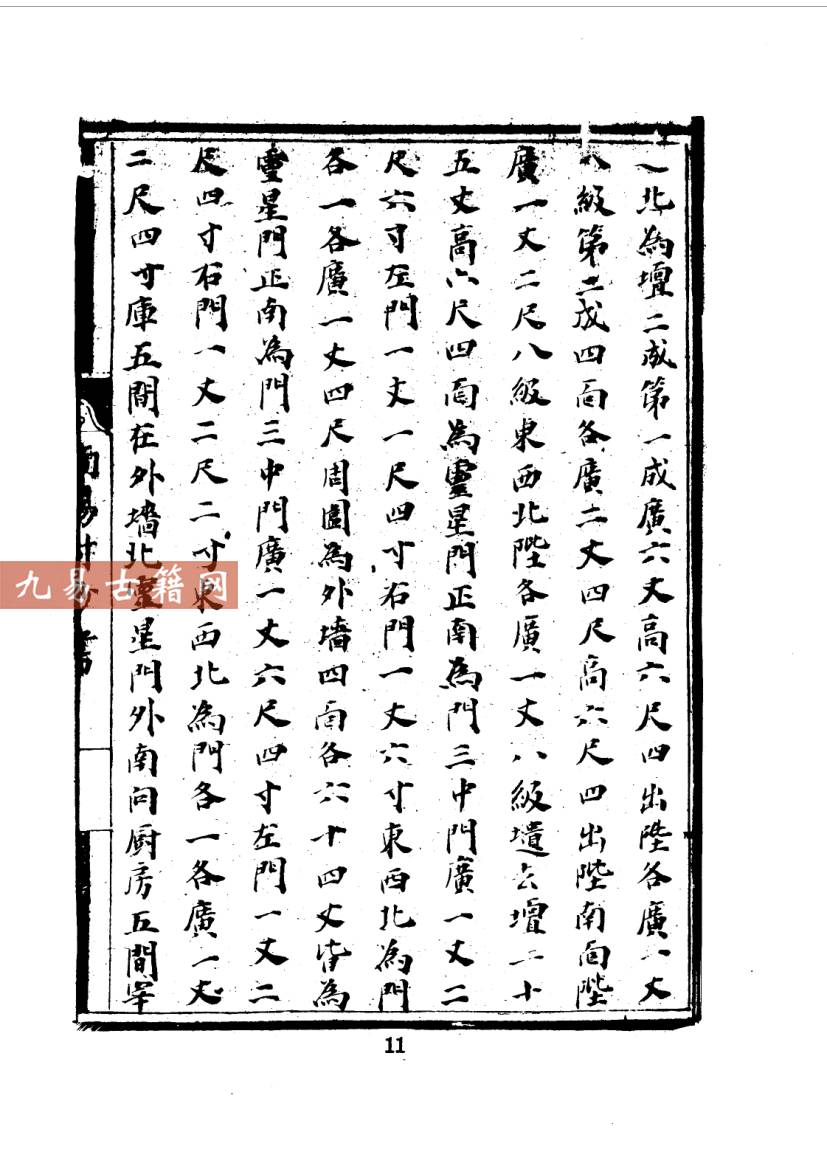 北為壇二成第一成廣六丈高六尺四出陛各廣一丈
級第二成四面各廣二丈四尺高六尺四出陛南面陛
廣一丈二尺八級東西北陛各廣一丈八級壝去壇二十
五丈高六尺四面為靈星門正南為門三中門廣一丈二
尺六寸左門一丈一尺四寸右門一丈六寸東西北為門
各一各廣一丈四尺周圍為外墻四面各六十四丈皆為
靈星門正南為門三中門廣一丈六尺四寸左門一丈二
尺四寸右門一丈二尺二寸東西北為門各一各廣一丈
二尺四寸庫五間在外墻北靈星門外南向厨房五間宰
九易古籍网
11